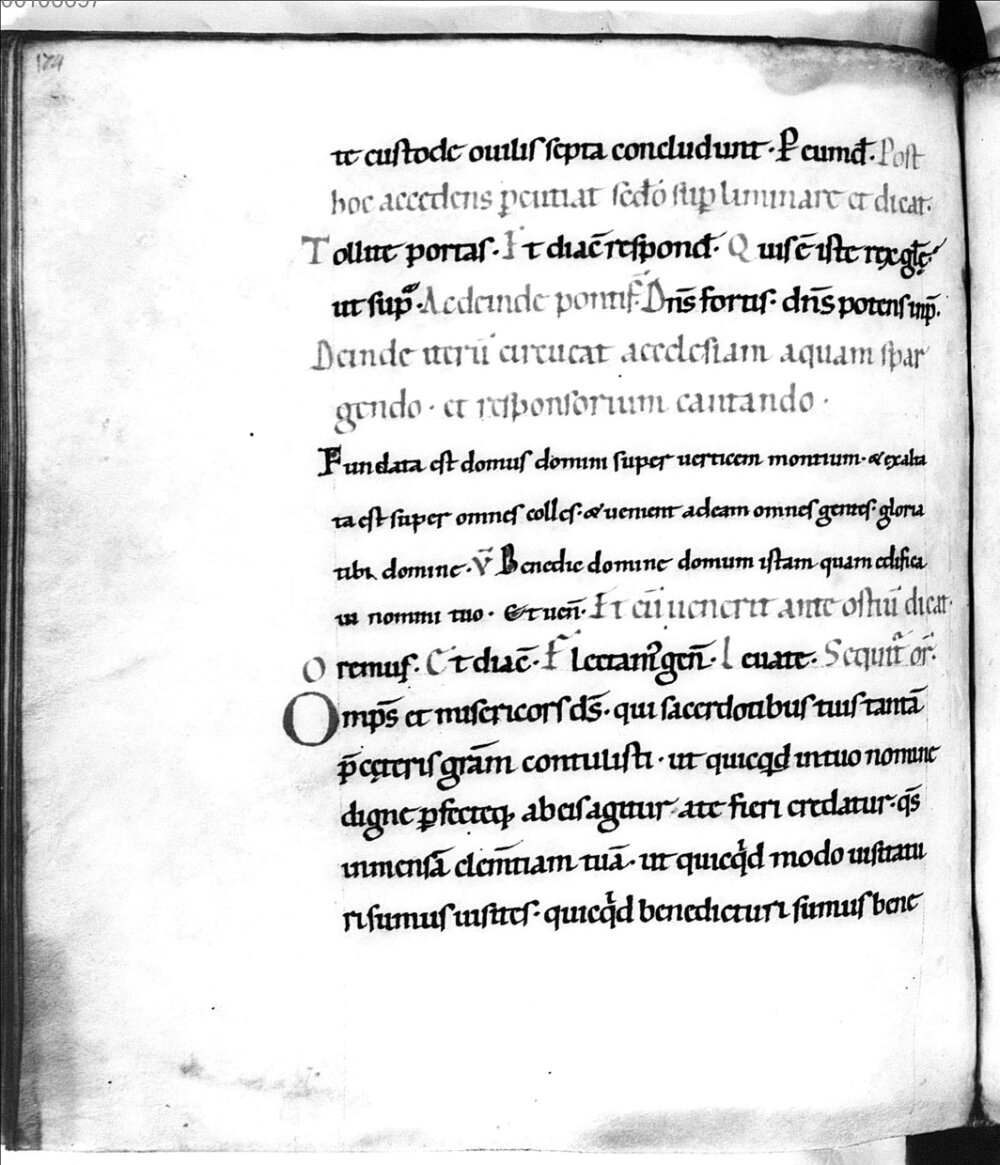 174
te custode ouilis septa concludunt · P eund̄. Post
hoc accedens ꝑcutiat sēdo sup̱ liminare et dicat.
Tollite portas · Et diac̄ respond̄. Quis ē iste rex glę.
ut sup̱ª. Ac deinde pontif̄. Dn̄s fortis · dn̄s potens inp̱.
Deinde iterū circucat aecclesiam aquam spar
gendo · et responsorium cantando ·
Fundata est domus domini super uerticem montium · & exalta
ta est super omnes colles · & uenient ad eam omnes gentes · gloria
tibi domine · V̄ Benedic domine domum istam quam edifica
ui nomini tuo · & uen̄. Et cū uenerit ante ostiū dicat.
Oremus. Et diac̄. Flectamꝰ gen̄. Leuate. Sequit̄ or̄.
Omp̄s et misericors d̄s · qui sacerdotibus tuis tantā
p̄ cęteris gr̄am contulisti · ut quicq̇d in tuo nomine
digne ꝑfecteq; ab eis agitur · a te fieri credatur · q̄s
inmensā clem̄tiam tuā · ut quicq̇d modo uisitatu
ri sumus uisites · quicq̇d benedicturi sumus bene